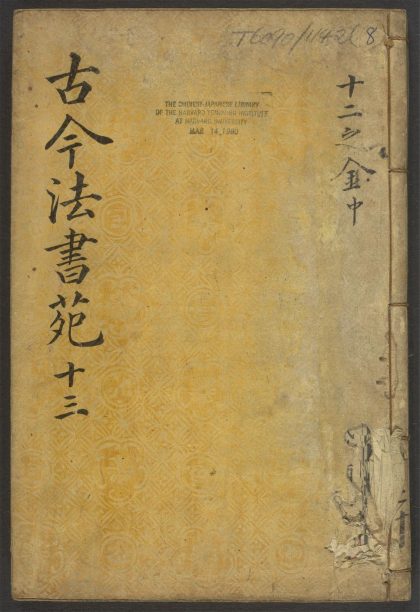 十二之金中
古今法書苑 十三
THE CHINESE-JAPANESE LIBRARY
OF THE HARVARD-YENCHING INSTITUTE
AT HARVARD UNIVERSITY
MAR 14 1960